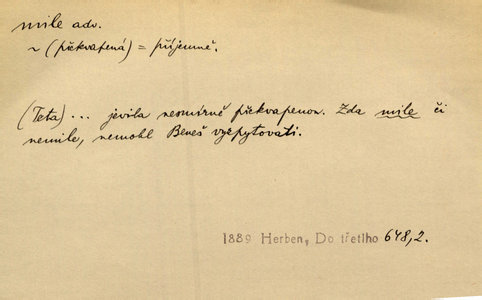 mile adv.
~ (překvapená) = příjemně.
(Teta) ... jevila nesmírně překvapenou. Zda mile či
nemile, nemohl Beneš vyzpytovati.
1889 Herben, Do třetího 648,2.